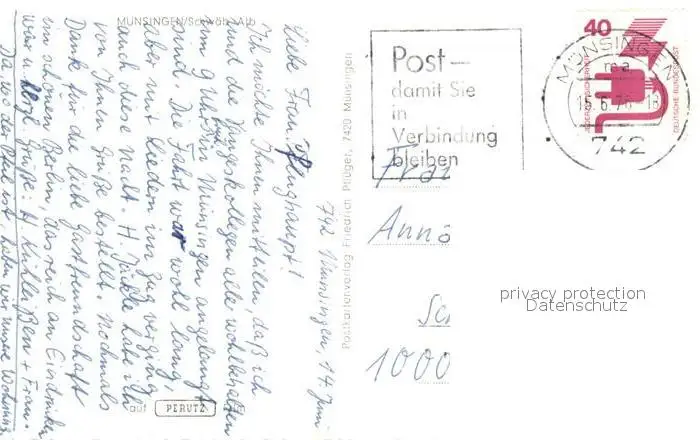 MÜNSINGEN/Schwäb. Alb
742 Münsingen, 14. Juni
Liebe Frau Pflughaupt!
Ich möchte Ihnen mitteilen, daß ich
und die Sangeskollegen alle wohlbehalten
um 9 Uhr in Münsingen angelangt
sind. Die Fahrt war wohl lang,
aber mit Liedern im Zug verging
auch diese Nacht. H. Jäckle habe ich
von Ihnen Grüße bestellt. Nochmals
Dank für die liebe Gastfreundschaft
im schönen Berlin, das reich an Eindrücken
war u. Grüße: H. + Frau.
Da wo der Pfeil ist, haben wir unsere Wohnung
auf PERUTZ
Postkartenverlag Friedrich Pflüger, 7420 Münsingen
Post–
damit Sie
in
Verbindung
bleiben
MÜNSINGEN
ma
15.6.76-18
742
40
JEDERZEIT SICHERHEIT
DEUTSCHE BUNDESPOST
Frau
Anna
Sc
1000
privacy protection
Datenschutz